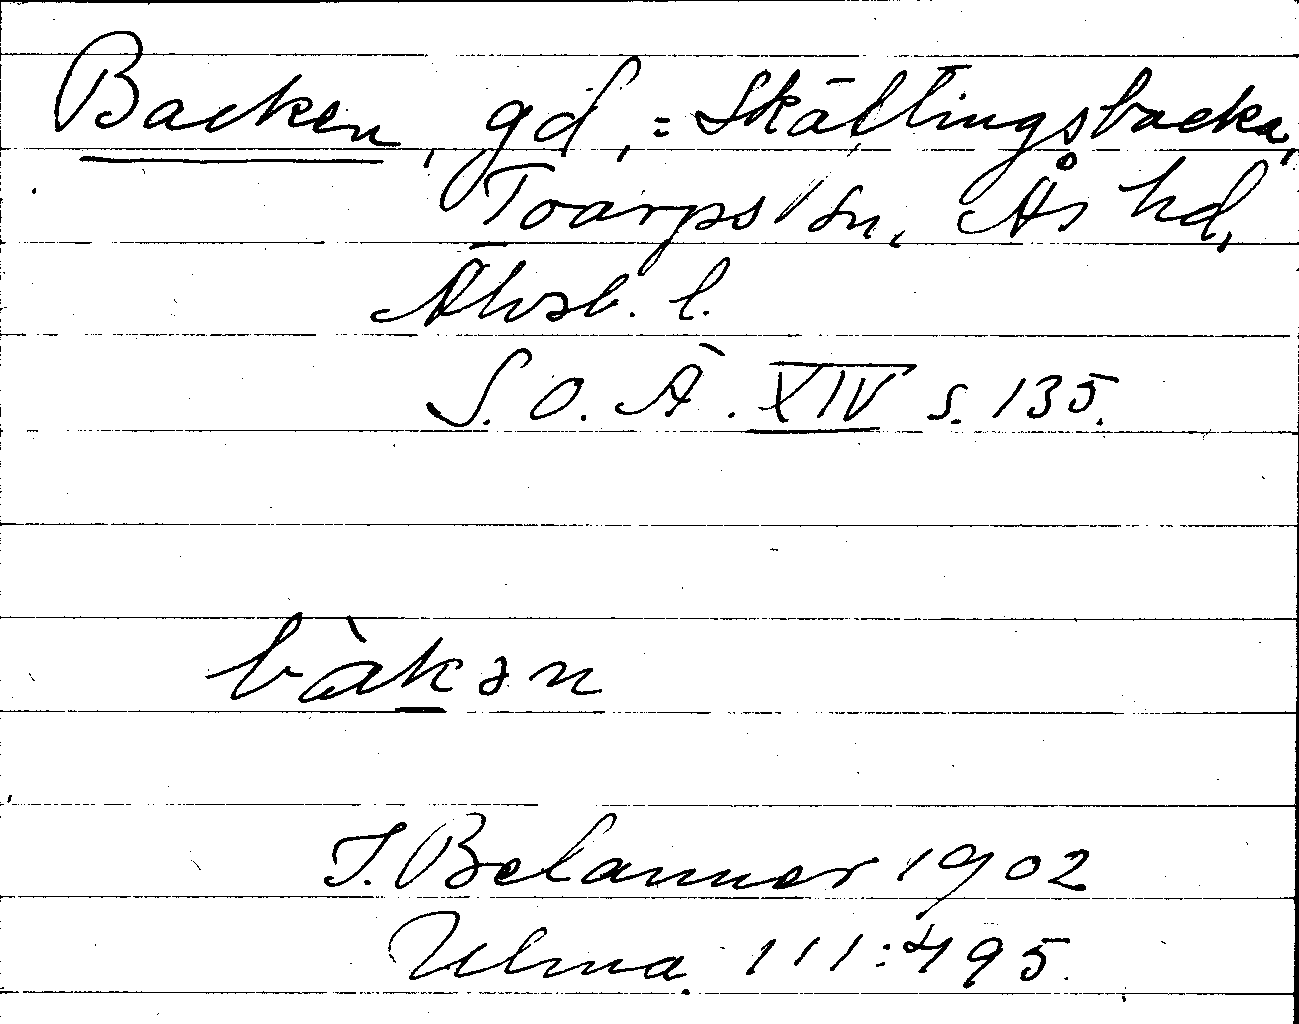 Backen, gd, = Skättingsbacka,
Toarps sn, Ås hd,
Älvsb. l.
S. O. Ä. XIV s. 135.
bàkən
J. Belanner 1902
Ulma 111:495.